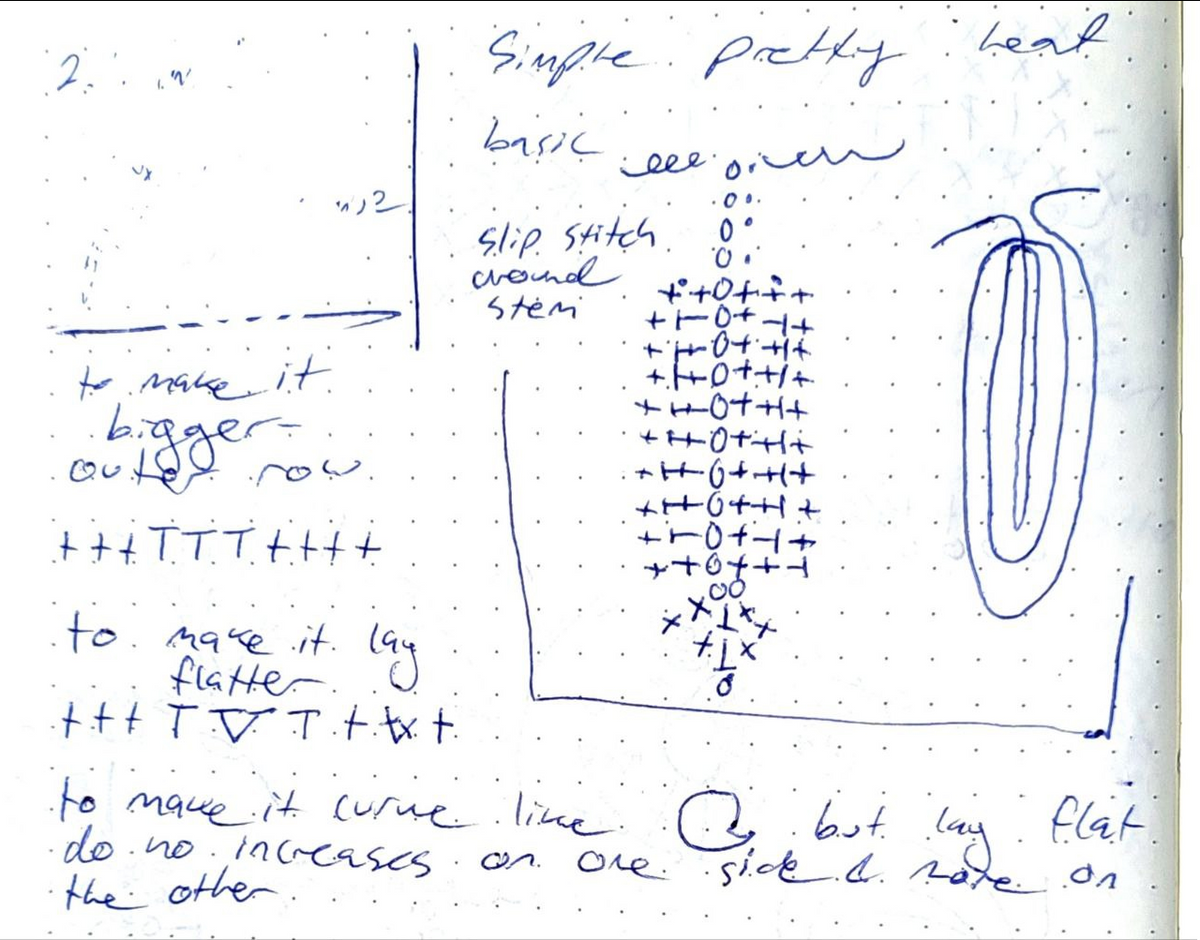 2.
Simple pretty leaf
basic
slip stitch
around
stem
to make it
bigger-
outer row
+++TTT++++
to make it lay
flatter
to make it curve like but lay flat
do no increases on one side & more on
the other